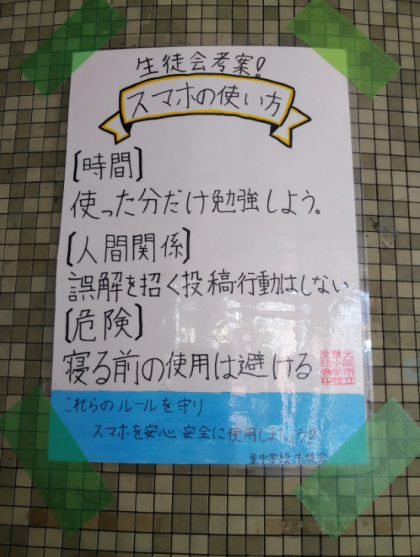 生徒会考案!
スマホの使い方
[時間]
使った分だけ勉強しよう。
[人間関係]
誤解を招く投稿行動はしない
[危険]
寝る前の使用は避ける
これらのルールを守り
スマホを安心・安全に使用しましょう!!